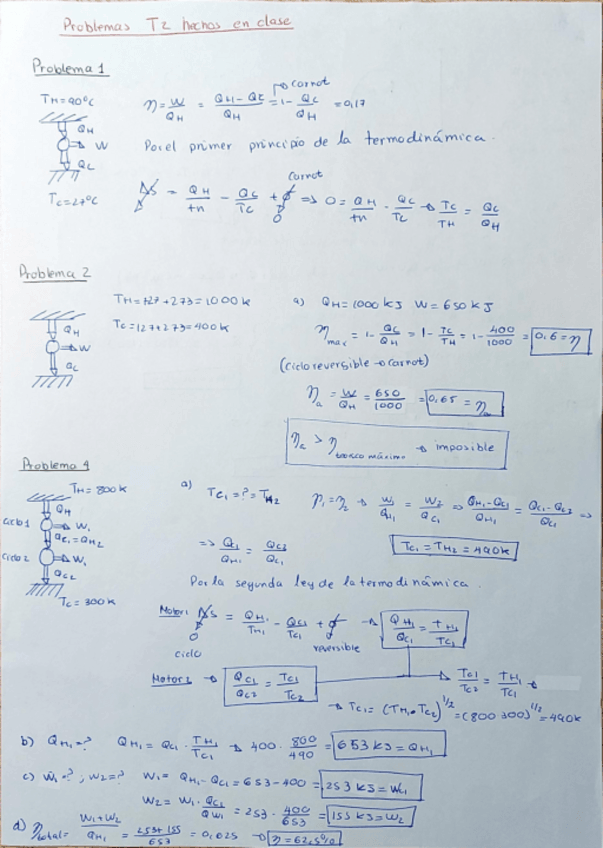 Problemas T2 hechos en clase
Problema 1
TH=90°C
QH
W
QC
TC=27°C
η = W/QH = (QH-QC)/QH = 1 - QC/QH = 0,17
→ carnot
Por el primer principio de la termodinámica.
ΔS = QH/tn - QC/TC + σ ⇒ 0 = QH/tn - QC/TC → TC/TH = QC/QH
Carnot
0
Problema 2
QH
W
QC
TH=727+273=1000K
TC=127+273=400K
a) QH=1000 kJ W=650 kJ
ηmax = 1 - QC/QH = 1 - TC/TH = 1 - 400/1000 = 0,6 = η
(ciclo reversible → carnot)
ηa = W/QH = 650/1000 = 0,65 = ηa
→ imposible
Problema 4
TH=800K
QH
ciclo1
W1
QC1=QH2
ciclo2
W1
QC2
TC=300K
a) TC1=?=TH2
η1=η2 → W1/QH1 = W2/QC1 ⇒ (QH1-QC1)/QH1 = (QC1-QC2)/QC1 ⇒
⇒ QC1/QH1 = QC2/QC1
TC1=TH2=490K
Por la segunda ley de la termodinámica.
Motor1 ΔS = QH1/TH1 - QC1/TC1 + σ → QH1/QC1 = TH1/TC1
0
ciclo
reversible
Motor2 → QC1/QC2 = TC1/TC2
TC1/TC2 = TH1/TC1 →
→ TC1 = (TH1·TC2)^1/2 = (800 300)^1/2 = 490K
b) QH1=? QH1 = QC1 · TH1/TC1 → 400 · 800/490 = 653 kJ = QH1
c) W1=? ; W2=? W1 = QH1-QC1 = 653-400 = 253 kJ = W1
W2 = W1 · = 253 · 400/653 = 155 kJ = W2
d) ηtotal = (W1+W2)/QH1 = (253+155)/653 = 0,625 → η=62,5%